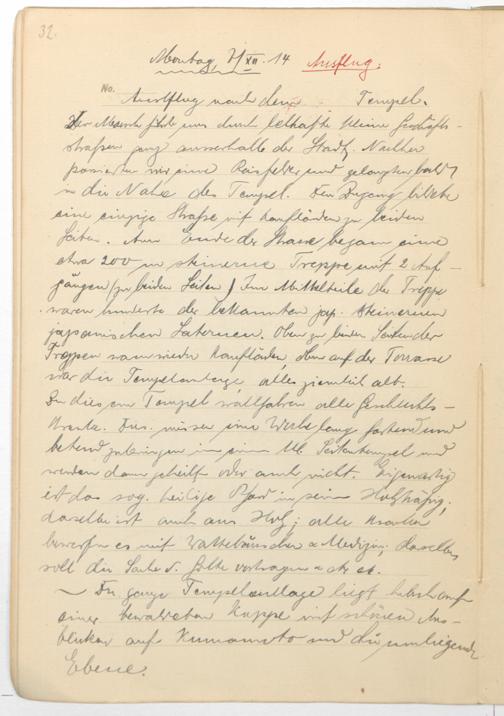 32.
Montag, 7/XII. 14 Ausflug.
No. Ausflug nach dem Tempel.
Der Marsch führt uns durch lebhafte kleine Geschäfts-
straßen ganz ausserhalb der Stadt. Nachher
passierten wir eine Reisfelder und gelangten bald
in die Nähe des Tempel. Den Zugang bildete
eine einzige Straße mit Kaufläden zu beiden
Seiten. Am Ende der Strasse begann eine
etwa 200 m steinerne Treppe mit 2 Auf-
gängen (zu beiden Seiten) Im Mittelteile der Treppe
waren hunderte der bekannten jap. steinernen
japanischen Laternen. Oben zu beiden Seiten der
Treppen waren wieder Kaufläden, oben auf der Terrasse
war die Tempelanlage, alles ziemlich alt.
Zu diesem Tempel wallfahren alle Geschlechts-
kranke. Dies. müssen eine Woche lang fastend und
betend zubringen in einem Seitentempel und
werden dann geheilt oder auch nicht. Eigenartig
ist das sog. heilige Pferd in sein Holzkäfig,
dasselbe ist auch aus Holz; alle Kranken
bewerfen es mit Wattebäuschen & Medizin. dasselbe
soll die Seite
Die ganze Tempelanlage liegt hübsch auf
einer bewaldeten Kuppe mit schönen Aus-
blicken auf Kumamoto und die umliegende
Ebene.